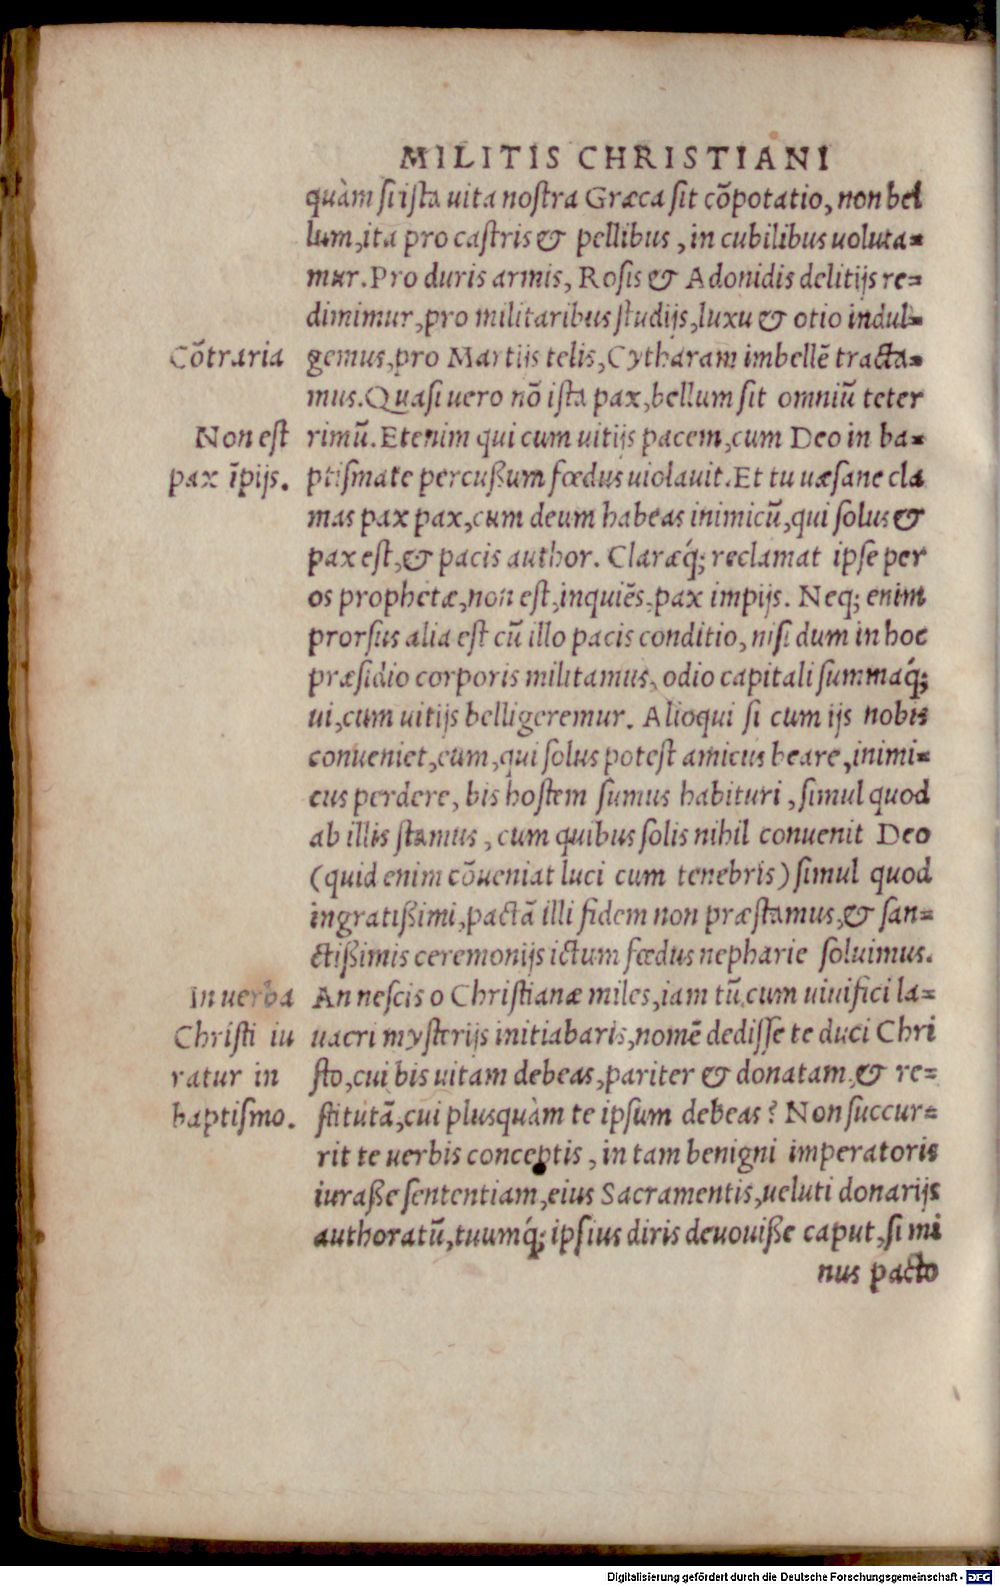 MILITIS CHRISTIANI
quàm si ista uita nostra Græca sit cõpotatio, non bel
lum, ita pro castris & pellibus, in cubilibus uoluta=
mur. Pro duris armis, Rosis & Adonidis delitijs re=
dimimur, pro militaribus studijs, luxu & otio indul=
Cõtraria
gemus, pro Martijs telis, Cytharam imbellẽ tracta=
mus. Quasi uero nõ ista pax, bellum sit omniũ teter
Non est
rimũ. Etenim qui cum uitijs pacem, cum Deo in ba=
pax ĩpijs.
ptismate percußum fœdus uiolauit. Et tu uæsane cla
mas pax pax, cum deum habeas inimicũ, qui solus &
pax est, & pacis author. Claraq́; reclamat ipse per
os prophetæ, non est, inquiẽs, pax impijs. Neq; enim
prorsus alia est cũ illo pacis conditio, nisi dum in hoc
præsidio corporis militamus, odio capitali summaq́;
ui, cum uitijs belligeremur. Alioqui si cum ijs nobis
conueniet, eum, qui solus potest amicus beare, inimi=
cus perdere, bis hostem sumus habituri, simul quod
ab illis stamus, cum quibus solis nihil conuenit Deo
(quid enim cõueniat luci cum tenebris) simul quod
ingratißimi, pactã illi fidem non præstamus, & san=
ctißimis ceremonijs ictum fœdus nepharie soluimus.
In uerba
An nescis o Christianæ miles, iam tũ, cum uiuifici la=
Christi iu
uacri mysterijs initiabaris, nomẽ dedisse te duci Chri
ratur in
sto, cui bis uitam debeas, pariter & donatam, & re=
baptismo.
stitutã, cui plusquàm te ipsum debeas? Non succur=
rit te uerbis conceptis, in tam benigni imperatoris
iuraße sententiam, eius Sacramentis, ueluti donarijs
authoratũ, tuumq́; ipsius diris deuouiße caput, si mi
nus pacto
Digitalisierung gefördert durch die Deutsche Forschungsgemeinschaft - DFG